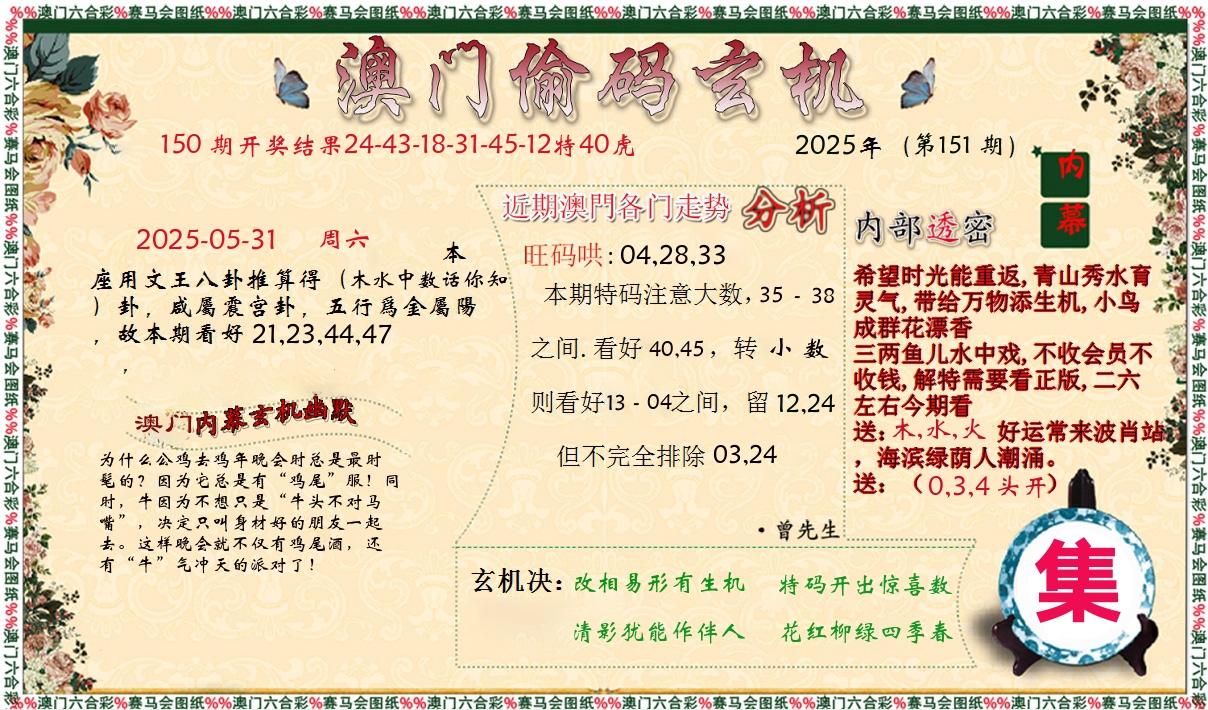 %%澳门六合彩%赛马会图纸%%澳门六合彩%赛马会图纸%%澳门六合彩%赛马会图纸%%澳门六合彩%赛马会图纸%%澳门六合彩%赛马会图纸%%澳门六合彩%赛马会图纸%%
澳门偷码玄机
150 期开奖结果24-43-18-31-45-12特40虎
2025年（第151 期）
内
幕
2025-05-31 周六
本
座用文王八卦推算得（木水中数话你知
）卦，咸屬震宫卦，五行爲金屬陽
，故本期看好 21,23,44,47
，
澳门内幕玄机幽默
为什么公鸡去鸡年晚会时总是最时
髦的？因为它总是有“鸡尾”服！同
时，牛因为不想只是“牛头不对马
嘴”，决定只叫身材好的朋友一起
去。这样晚会就不仅有鸡尾酒，还
有“牛”气冲天的派对了！
近期澳門各门走势 分析
旺码哄: 04,28,33
本期特码注意大数, 35 - 38
之间. 看好 40,45， 转 小 数
则看好13 - 04之间， 留 12,24
但不完全排除 03,24
·曾先生
内部透密
希望时光能重返, 青山秀水育
灵气, 带给万物添生机, 小鸟
成群花漂香
三两鱼儿水中戏, 不收会员不
收钱, 解特需要看正版, 二六
左右今期看
送: 木,水,火 好运常来波肖站
，海滨绿荫人潮涌。
送: （0,3,4 头开）
玄机决: 改相易形有生机 特码开出惊喜数
清影犹能作伴人 花红柳绿四季春
集
%%澳门六合彩%赛马会图纸%%澳门六合彩%赛马会图纸%%澳门六合彩%赛马会图纸%%澳门六合彩%赛马会图纸%%澳门六合彩%赛马会图纸%%澳门六合彩%赛马会图纸%%
%%澳门六合彩%赛马会图纸%%澳门六合彩%赛马会图纸%%澳门六合彩%赛马会图纸%%澳门六合彩
%%澳门六合彩%赛马会图纸%%澳门六合彩%赛马会图纸%%澳门六合彩%赛马会图纸%%澳门六合彩